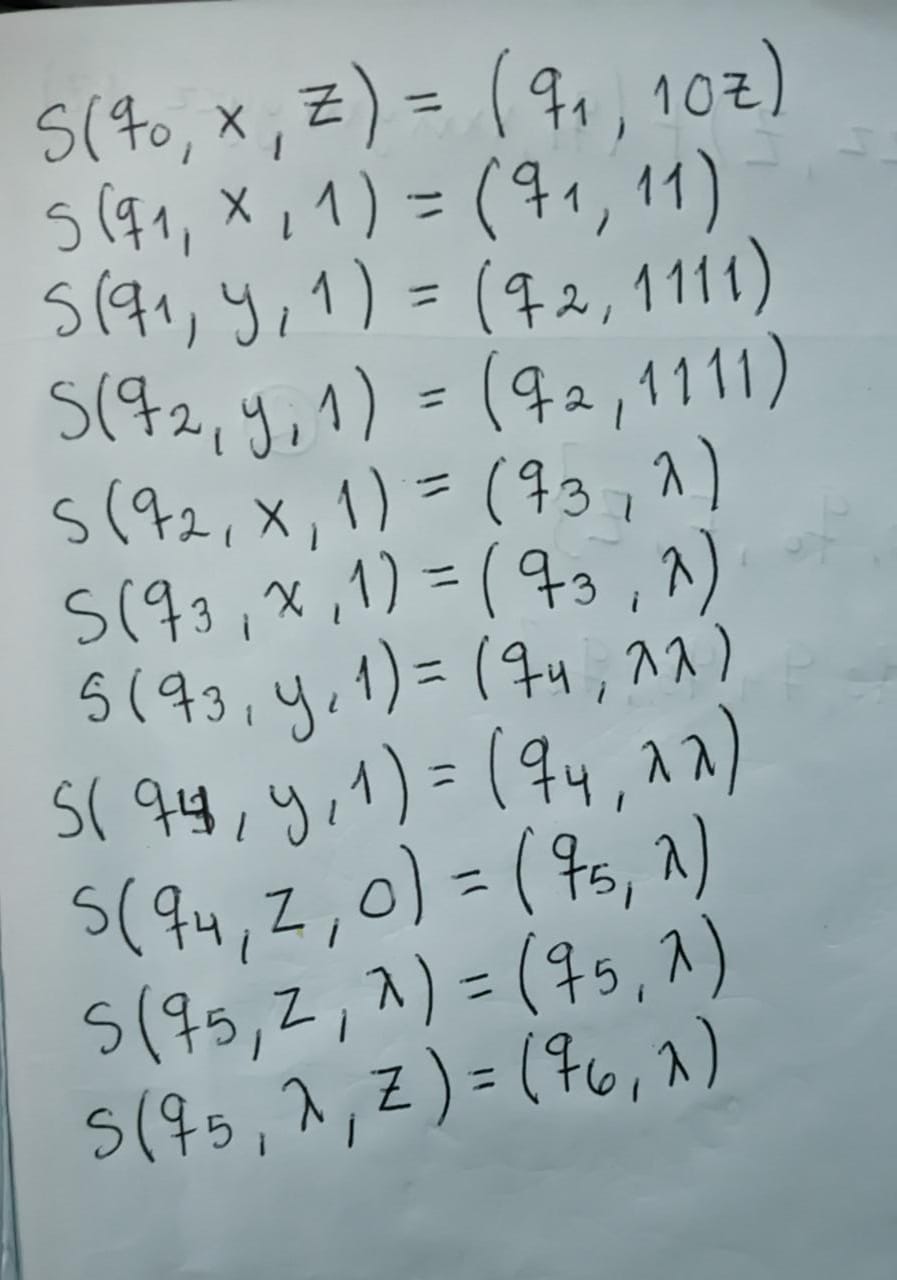 S(q₀, x, z) = (q₁, 10z)
S(q₁, x, 1) = (q₁, 11)
S(q₁, y, 1) = (q₂, 1111)
S(q₂, y, 1) = (q₂, 1111)
S(q₂, x, 1) = (q₃, λ)
S(q₃, x, 1) = (q₃, λ)
S(q₃, y, 1) = (q₄, λλ)
S(q₄, y, 1) = (q₄, λλ)
S(q₄, z, 0) = (q₅, λ)
S(q₅, z, λ) = (q₅, λ)
S(q₅, λ, z) = (q₆, λ)